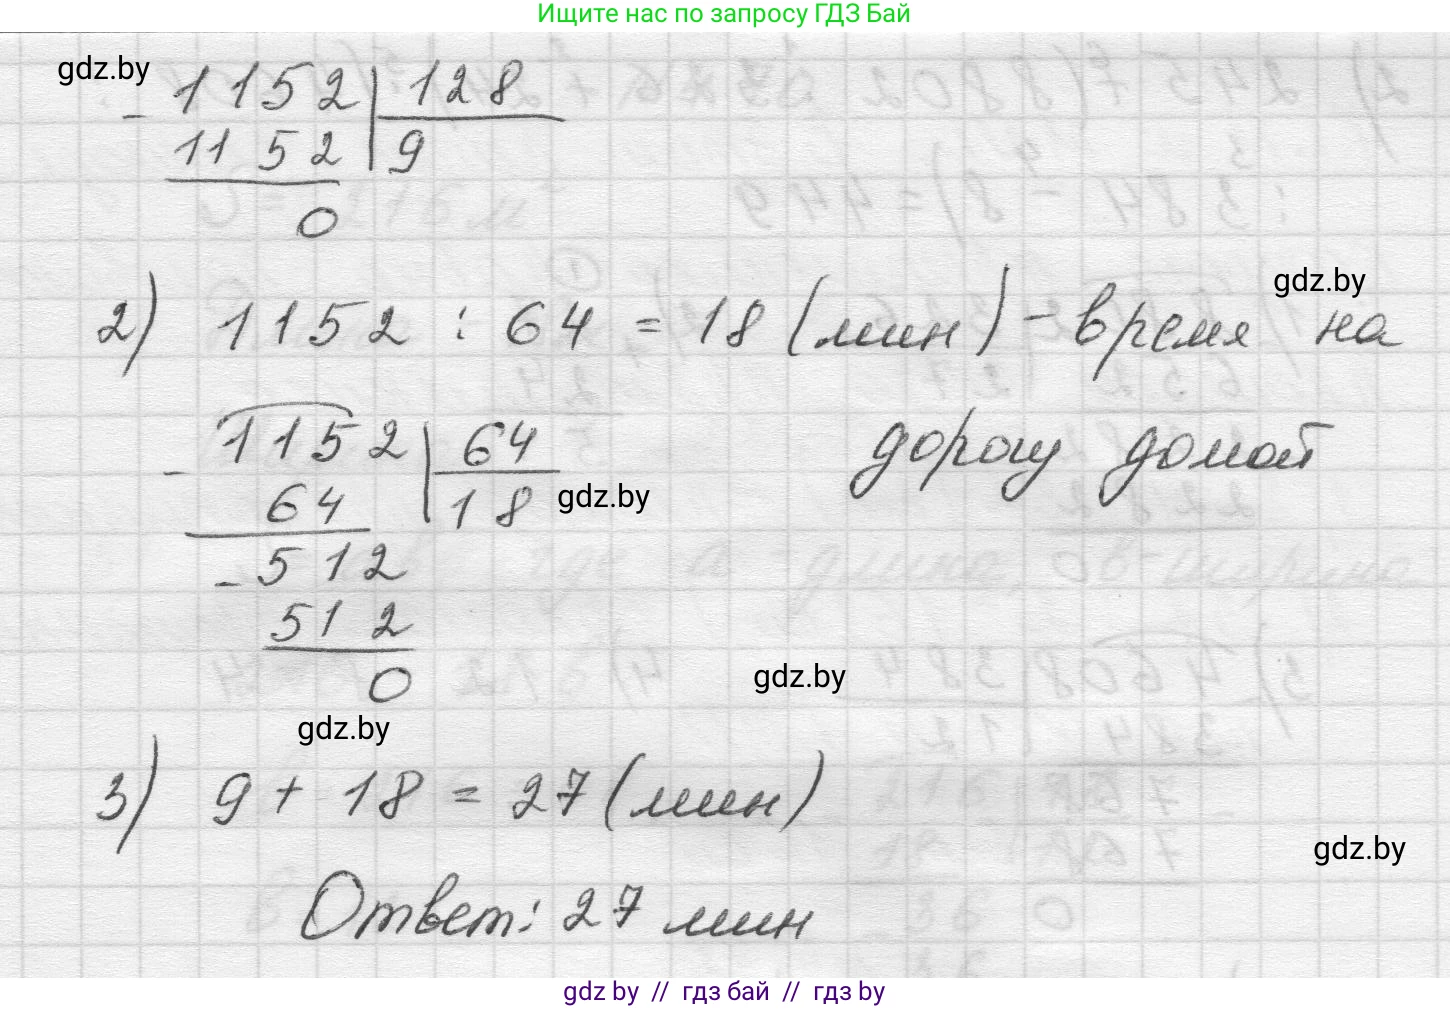 Ищите нас по запросу ГДЗ Бай
gdz.by
- 1152 | 128
1152 | 9
0
gdz.by
2) 1152 : 64 = 18 (мин) - время на
дорогу домой
- 1152 | 64
64 | 18
gdz.by
- 512
512
0
gdz.by
gdz.by
3) 9 + 18 = 27 (мин)
gdz.by
Ответ: 27 мин
gdz by // гдз бай // гдз by